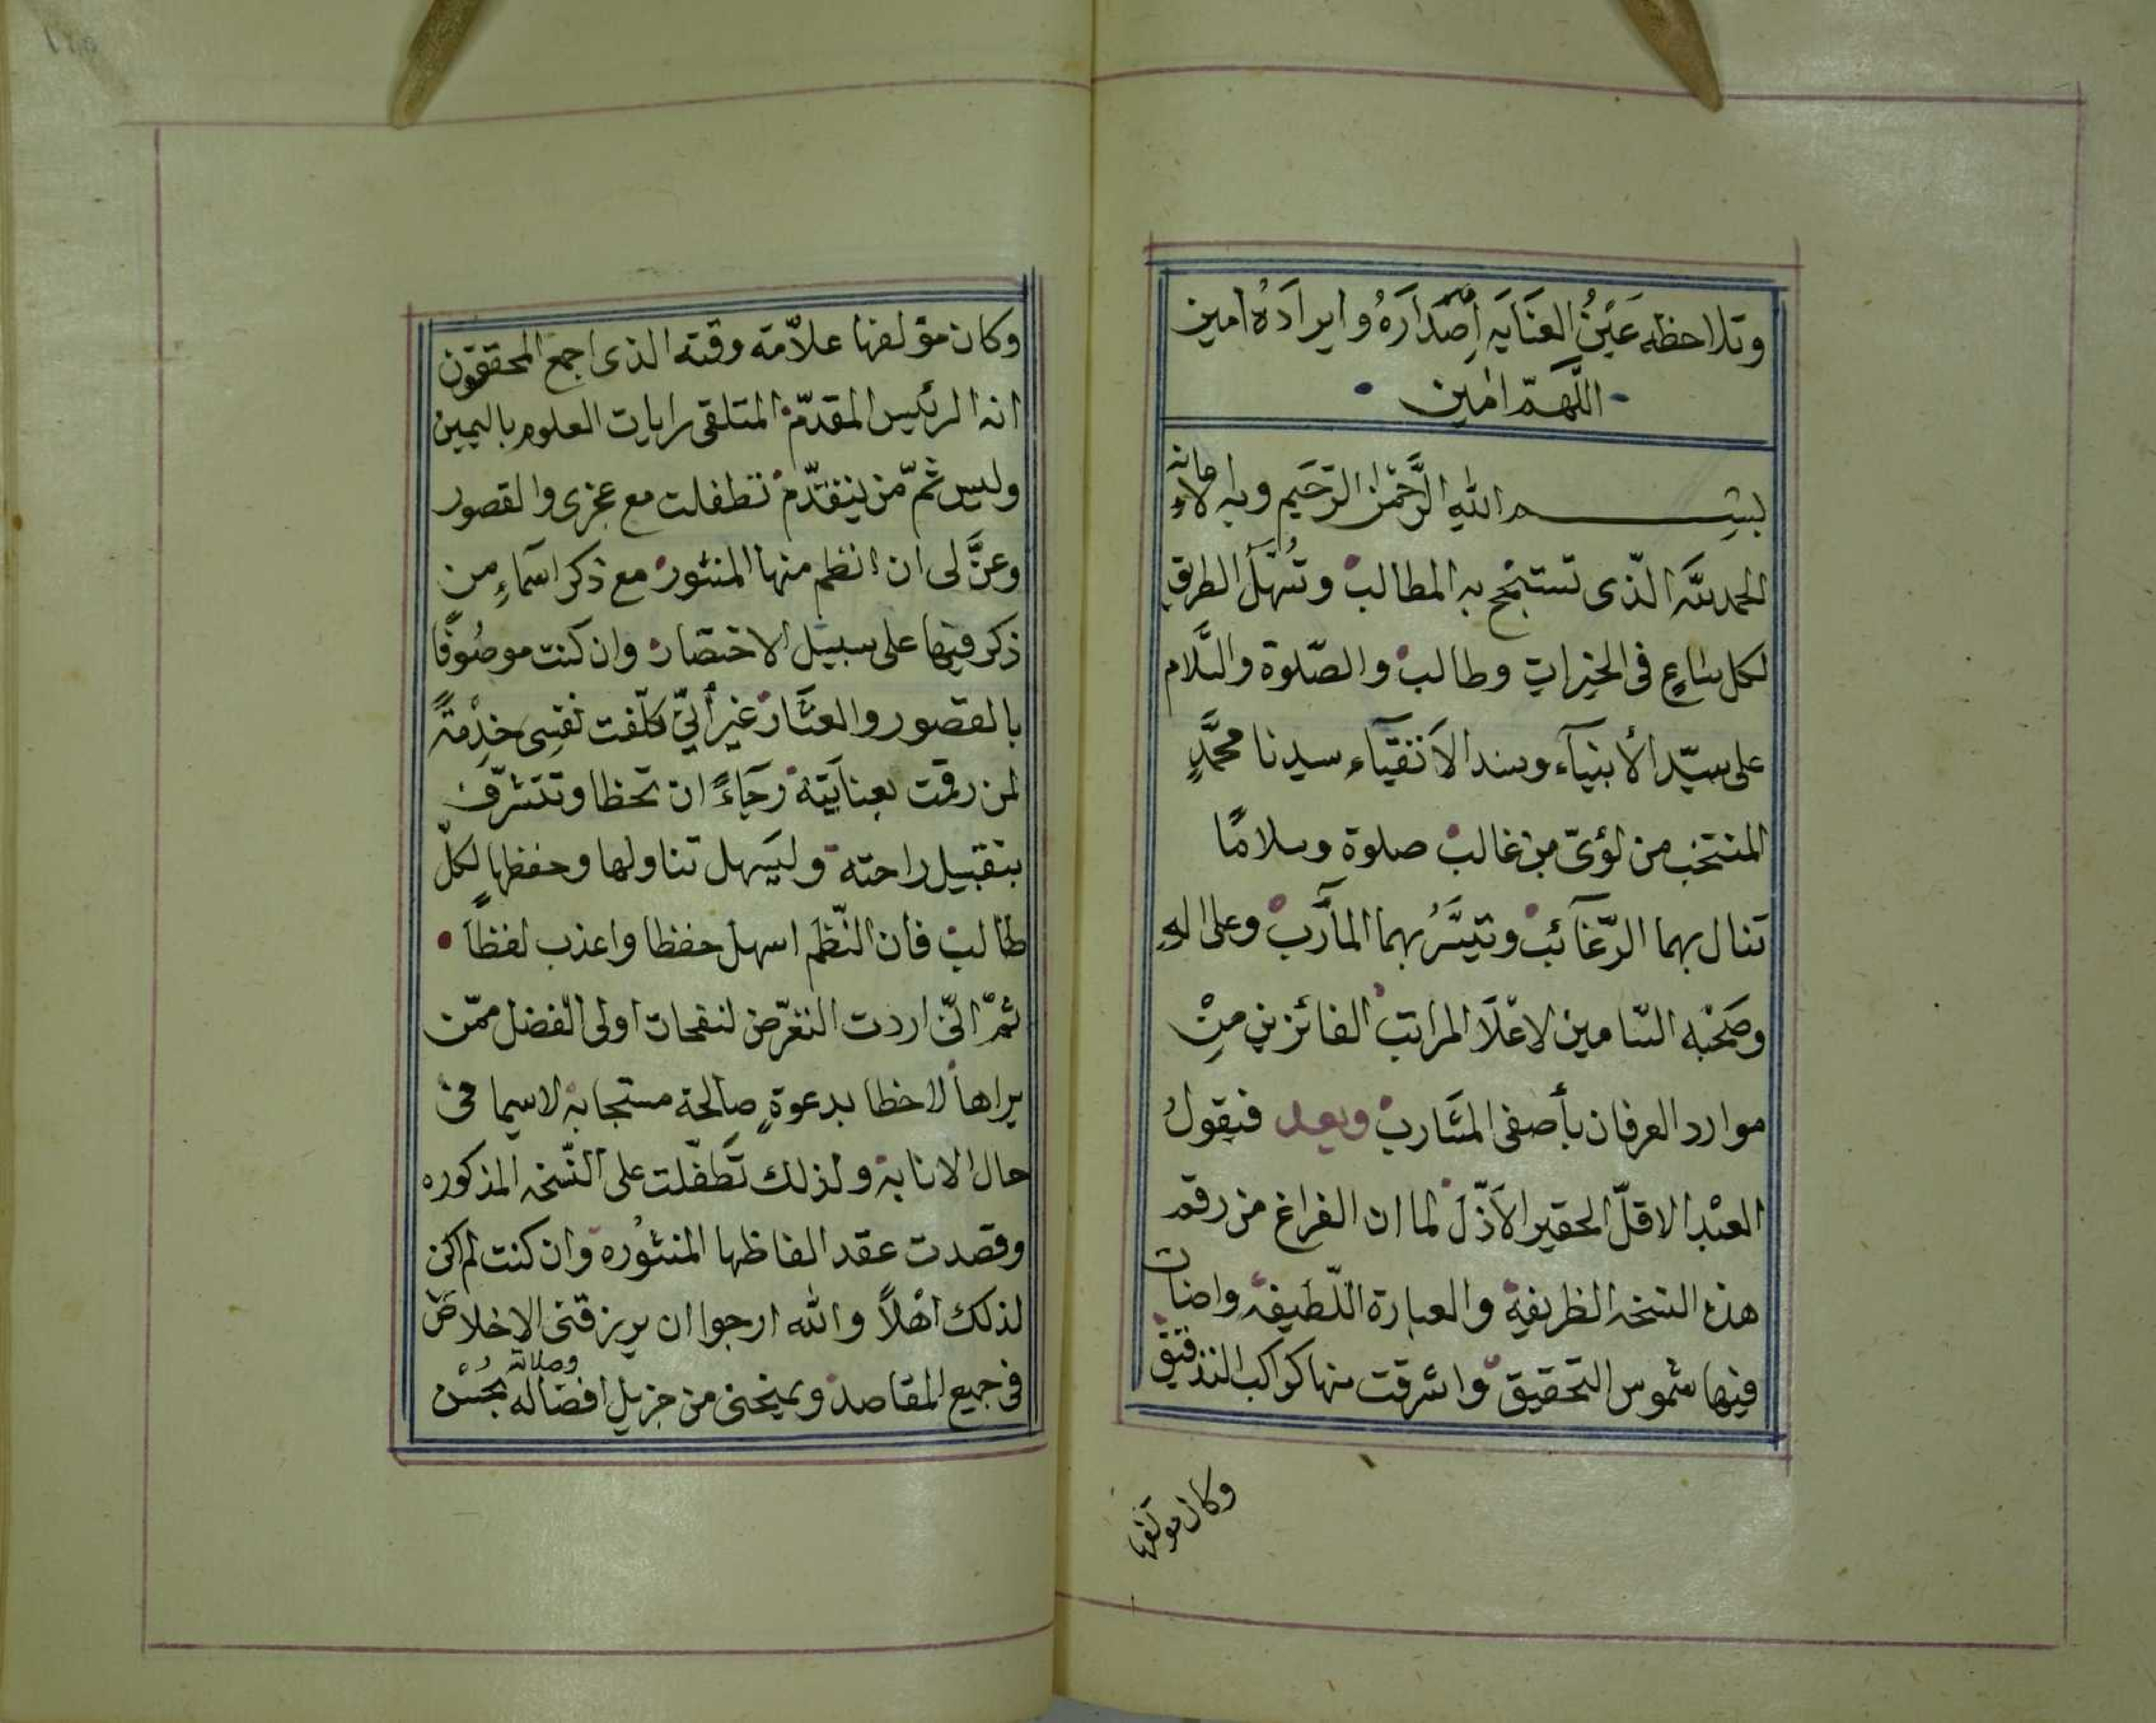 وتلاحظه عَيْنُ العنَايَه اِصْدَارَهُ وايرادَهُ امين
اللّهمّ امين
بِسْم الله الرَّحْمٰن الرّحَيم وبه الاعانه
الحمد لله الّذى تستنجح به المطالب وتُسَهّلُ الطريق
لكل ساعٍ فى الخيرات وطالب والصّلوة والسَّلام
على سيّد الأنبيَآء وسند الاَتقيَآء سيدنا محمَّدٍ
المنتخب من لؤىّ بن غالب صلوة وسلامًا
تنال بهما الرّغَآئب وتتيَسَّرُ بهما المآرَب وعلى الهِ
وصَحْبه السّامين لاعْلاَ المراتب الفائزين مِنْ
موارد العرفان بأصفى المشَارب وبعد فيقولُ
العبْد الاقلّ الحقير الاَذّلّ لما ان الفراغ من رقم
هذه النسخه الظريفة والعبارة اللّطيفه واضات
فيها شموس التحقيق واشرقت منها كواكب التدقيق
وكان مؤلفها
وكان مؤلفها علاّمة وقته الذى اجمع المحققون
انه الرئيس المقدّم المتلقى رايات العلوم باليمين
وليس ثَمّ من يتقدّم تطفلت مع عجزى والقصور
وعنَّ لى ان انظم منها المنثور مع ذكر اسمَاءِ من
ذكر فيها على سبيل الاختصار وان كنت موصُوفًا
بالقصور والعثَار غير أنّى كلّفت نفسِى خدْمةً
لمن رقمت بعنايَته رجَاءً ان تحظا وتتشرّف
بتقبيل راحته وليَسهل تناولها وحفظها لكلّ
طالب فأن النّظم اسهل حفظا واعذب لفظاً
ثمّ انّى اردت التغرّض لنفحات اولى الفضل ممّن
يراها لاحظا بدعوةٍ صالحة مستجابة لاسيما فى
حال الانابة ولذلك تَطَفّلت على النّسخه المذكوره
وقصدت عقد الفاظها المنثوُرة وان كنت لم اكن
لذلك اهْلاً والله ارجوا ان يرزقنى الاخلاصَ
فى جميع المقاصد ويمنحنى من جزيل افضَاله وصلاته بحُسْن